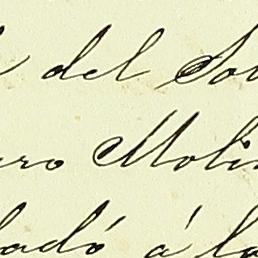 del So
ro Moli
ladó á la